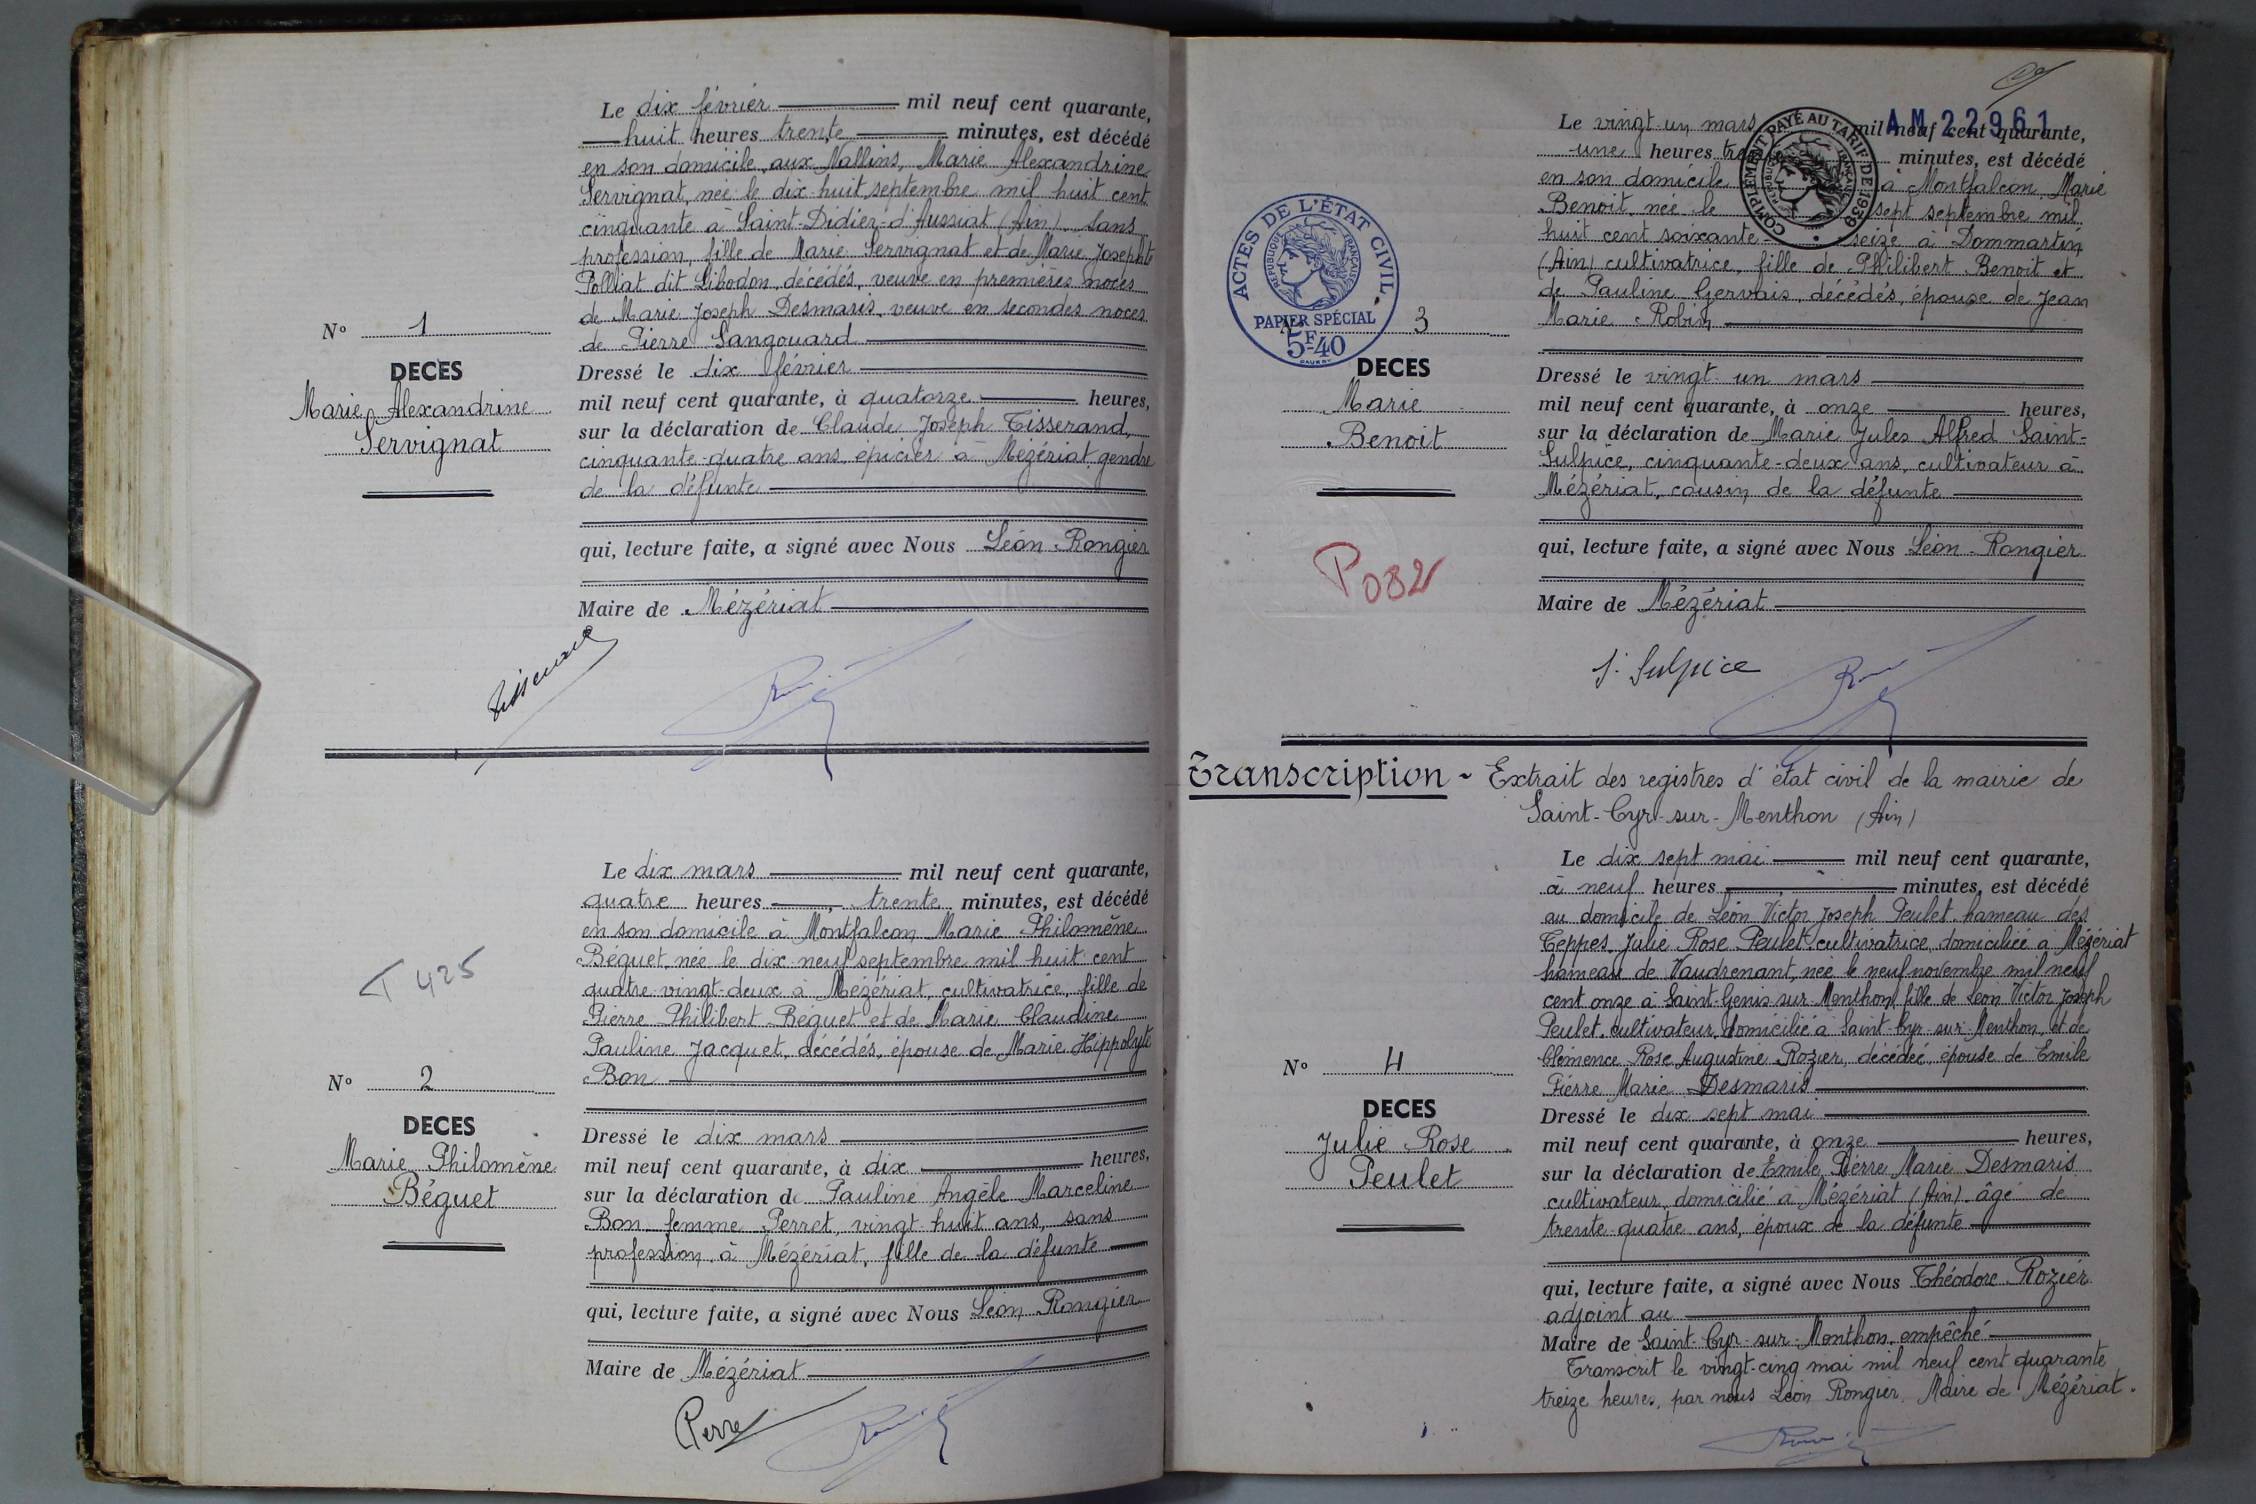 Le dix février mil neuf cent quarante,
huit heures trente minutes, est décédé
en son domicile aux Nallins, Marie Alexandrine
Servignat, née le dix huit septembre mil huit cent
cinquante à Saint-Didier-d'Aussiat (Ain) sans
profession, fille de Marie Servignat et de Marie Josephte
Polliat dit Libodon, décédés, veuve en premières noces
de Marie Joseph Desmaris, veuve en secondes noces
de Pierre Sangouard
N° 1
DECES
Marie Alexandrine
Servignat
Dressé le dix février
mil neuf cent quarante, à quatorze heures,
sur la déclaration de Claude Joseph Tisserand,
cinquante-quatre ans, épicier à Mézériat, gendre
de la défunte
qui, lecture faite, a signé avec Nous Léon Rongier
Maire de Mézériat
Tisserand
T 425
Le dix mars mil neuf cent quarante,
quatre heures, trente minutes, est décédé
en son domicile à Montfalcon Marie Philomène
Béguet, née le dix neuf septembre mil huit cent
quatre-vingt-deux à Mézériat, cultivatrice, fille de
Pierre Philibert Béguet et de Marie Claudine
Pauline Jacquet, décédés, épouse de Marie Hippolyte
Bon
N° 2
DECES
Marie Philomène
Béguet
Dressé le dix mars
mil neuf cent quarante, à dix heures,
sur la déclaration de Pauline Angèle Marceline
Bon femme Perret, vingt-huit ans, sans
profession, à Mézériat, fille de la défunte
qui, lecture faite, a signé avec Nous Léon Rongier
Maire de Mézériat
Perret
AM 22961
COMPLÉMENT PAYÉ AU TARIF DE 1939
RÉPUBLIQUE FRANÇAISE
Le vingt-un mars mil neuf cent quarante,
une heures minutes, est décédé
en son domicile à Montfalcon Marie
Benoit, née le sept septembre mil
huit cent soixante-seize à Dommartin
(Ain) cultivatrice, fille de Philibert Benoit et
de Pauline Gervais, décédés, épouse de Jean
Marie Robin
ACTES DE L'ÉTAT CIVIL
RÉPUBLIQUE FRANÇAISE
PAPIER SPÉCIAL
5F40
3
DECES
Marie
Benoit
P082
Dressé le vingt-un mars
mil neuf cent quarante, à onze heures,
sur la déclaration de Marie Jules Alfred Saint-
Sulpice, cinquante-deux ans, cultivateur à
Mézériat, cousin de la défunte
qui, lecture faite, a signé avec Nous Léon Rongier
Maire de Mézériat
S. Sulpice
Transcription - Extrait des registres d'état civil de la mairie de
Saint-Cyr-sur-Menthon (Ain)
Le dix sept mai mil neuf cent quarante,
à neuf heures minutes, est décédé
au domicile de Léon Victor Joseph Peulet hameau des
Teppes, Julie Rose Peulet cultivatrice, domiciliée à Mézériat
hameau de Vaudrenant, née le neuf novembre mil neuf
cent onze à Saint-Genis sur Menthon, fille de Léon Victor Joseph
Peulet, cultivateur, domicilié à Saint-Cyr-sur-Menthon, et de
Clémence Rose Augustine Rozier, décédée, épouse de Emile
Pierre Marie Desmaris
N° 4
DECES
Julie Rose
Peulet
Dressé le dix sept mai
mil neuf cent quarante, à onze heures,
sur la déclaration de Emile Pierre Marie Desmaris
cultivateur, domicilié à Mézériat (Ain) âgé de
trente-quatre ans, époux de la défunte
qui, lecture faite, a signé avec Nous Théodore Rozier
adjoint au
Maire de Saint-Cyr-sur-Menthon, empêché
Transcrit le vingt-cinq mai mil neuf cent quarante
treize heures, par nous Léon Rongier, Maire de Mézériat.